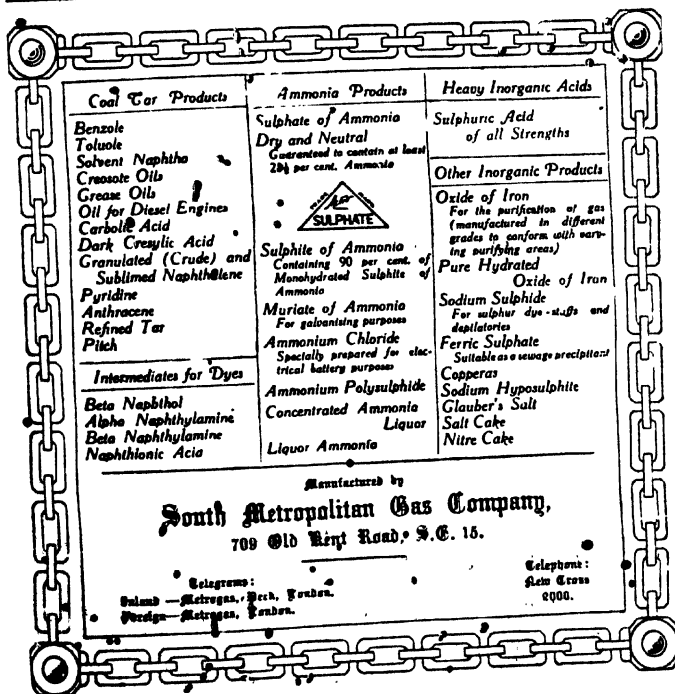 Coal Tar Products
Benzole
Toluole
Solvent Naphtha
Creosote Oils
Grease Oils
Oil for Diesel Engines
Carbolic Acid
Dark Cresylic Acid
Granulated (Crude) and
Sublimed Naphthalene
Pyridine
Anthracene
Refined Tar
Pitch
Intermediates for Dyes
Beta Naphthol
Alpha Naphthylamine
Beta Naphthylamine
Naphthionic Acid
Ammonia Products
Sulphate of Ammonia
Dry and Neutral
Guaranteed to contain at least
per cent. Ammonia
SULPHATE
Sulphite of Ammonia
Containing 90 per cent. of
Monohydrated Sulphite of
Ammonia
Muriate of Ammonia
For galvanising purposes
Ammonium Chloride
Specially prepared for elec-
trical battery purposes
Ammonium Polysulphide
Concentrated Ammonia
Liquor
Liquor Ammonia
Heavy Inorganic Acids
Sulphuric Acid
of all Strengths
Other Inorganic Products
Oxide of Iron
For the purification of gas
(manufactured in different
grades to conform with vary-
ing purifying areas)
Pure Hydrated
Oxide of Iron
Sodium Sulphide
For sulphur dye-stuffs and
depilatories
Ferric Sulphate
Suitable as a sewage precipitant
Copperas
Sodium Hyposulphite
Glauber's Salt
Salt Cake
Nitre Cake
Manufactured by
South Metropolitan Gas Company,
709 Old Kent Road, S.E. 15.
Telegrams:
Inland—Metrogas, Peck, London.
Foreign—Metrogas, London.
Telephone:
New Cross
2000.